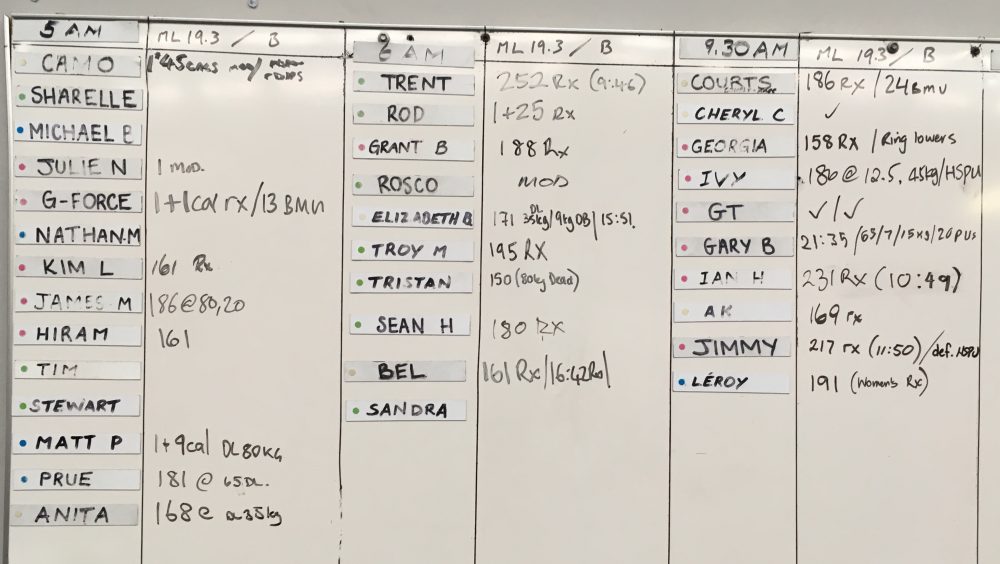 5 AM ML 19.3 / B
CAMO 1+45 cals mod/
SHARELLE
MICHAEL B
JULIE N 1 MOD.
G-FORCE 1+1 cal rx/13 BMU
NATHAN.M
KIM L 161 Rx
JAMES M 186@80,20
HIRAM 161
TIM
STEWART
MATT P 1+9cal DL80KG
PRUE 181 @ 65DL.
ANITA 168@ DL35kg
8 AM ML 19.3 / B
TRENT 252 Rx (9:46)
ROD 1+25 Rx
GRANT B 188 Rx
ROSCO MOD
ELIZABETH B 171 DL 35kg/9kg DB/15:51.
TROY M 195 RX
TRISTAN 150 (80kg Dead)
SEAN H 180 RX
BEL 161 Rx/16:42
SANDRA
9.30AM ML 19.3 / B
COURTS 186 RX /24 BMU
CHERYL C ✓
GEORGIA 158 Rx /Ring lowers
IVY 180 @ 12.5, 45kg/HSPU
GT ✓/✓
GARY B 21:35/65/7/15kg/20 PUs
IAN H 231 RX (10:49)
AK 169 rx
JIMMY 217 rx (11:50)/def. HSPU
LEROY 191 (Women's Rx)